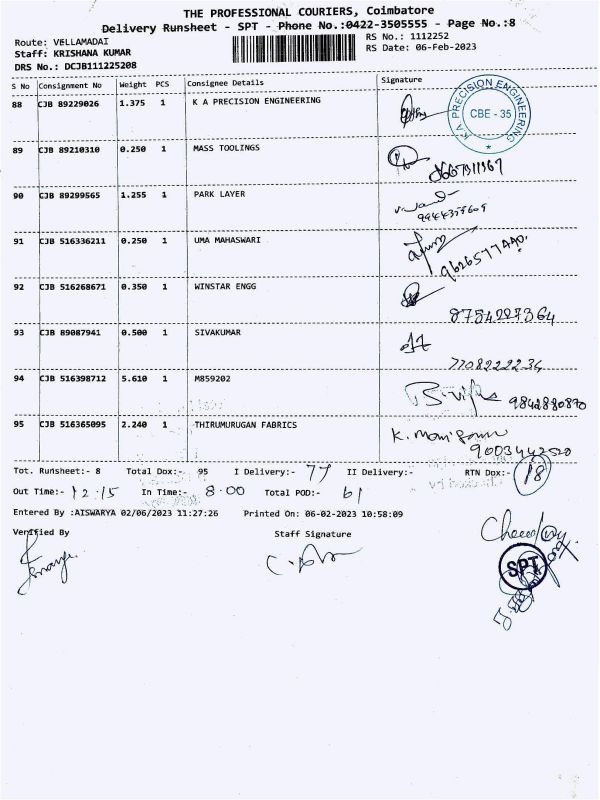 THE PROFESSIONAL COURIERS, Coimbatore
Delivery Runsheet - SPT - Phone No.:0422-3505555 - Page No.:8
Route: VELLAMADAI
RS No.: 1112252
Staff: KRISHANA KUMAR
RS Date: 06-Feb-2023
DRS No.: DCJB111225208
S No Consignment No Weight PCS Consignee Details Signature
88 CJB 89229026 1.375 1 K A PRECISION ENGINEERING
K A PRECISION ENGINEERING CBE - 35
89 CJB 89210310 0.250 1 MASS TOOLINGS
90 CJB 89299565 1.255 1 PARK LAYER
91 CJB 516336211 0.250 1 UMA MAHASWARI
92 CJB 516268671 0.350 1 WINSTAR ENGG
8754227364
93 CJB 89087941 0.500 1 SIVAKUMAR
7708222234
94 CJB 516398712 5.610 1 M859202
9842880870
95 CJB 516365095 2.240 1 THIRUMURUGAN FABRICS
9003442520
Tot. Runsheet:- 8 Total Dox:- 95 I Delivery:- 77 II Delivery:- RTN Dox:- 18
Out Time:- 12.15 In Time:- 8.00 Total POD:- 61
Entered By :AISWARYA 02/06/2023 11:27:26 Printed On: 06-02-2023 10:58:09
Verified By Staff Signature
SPT